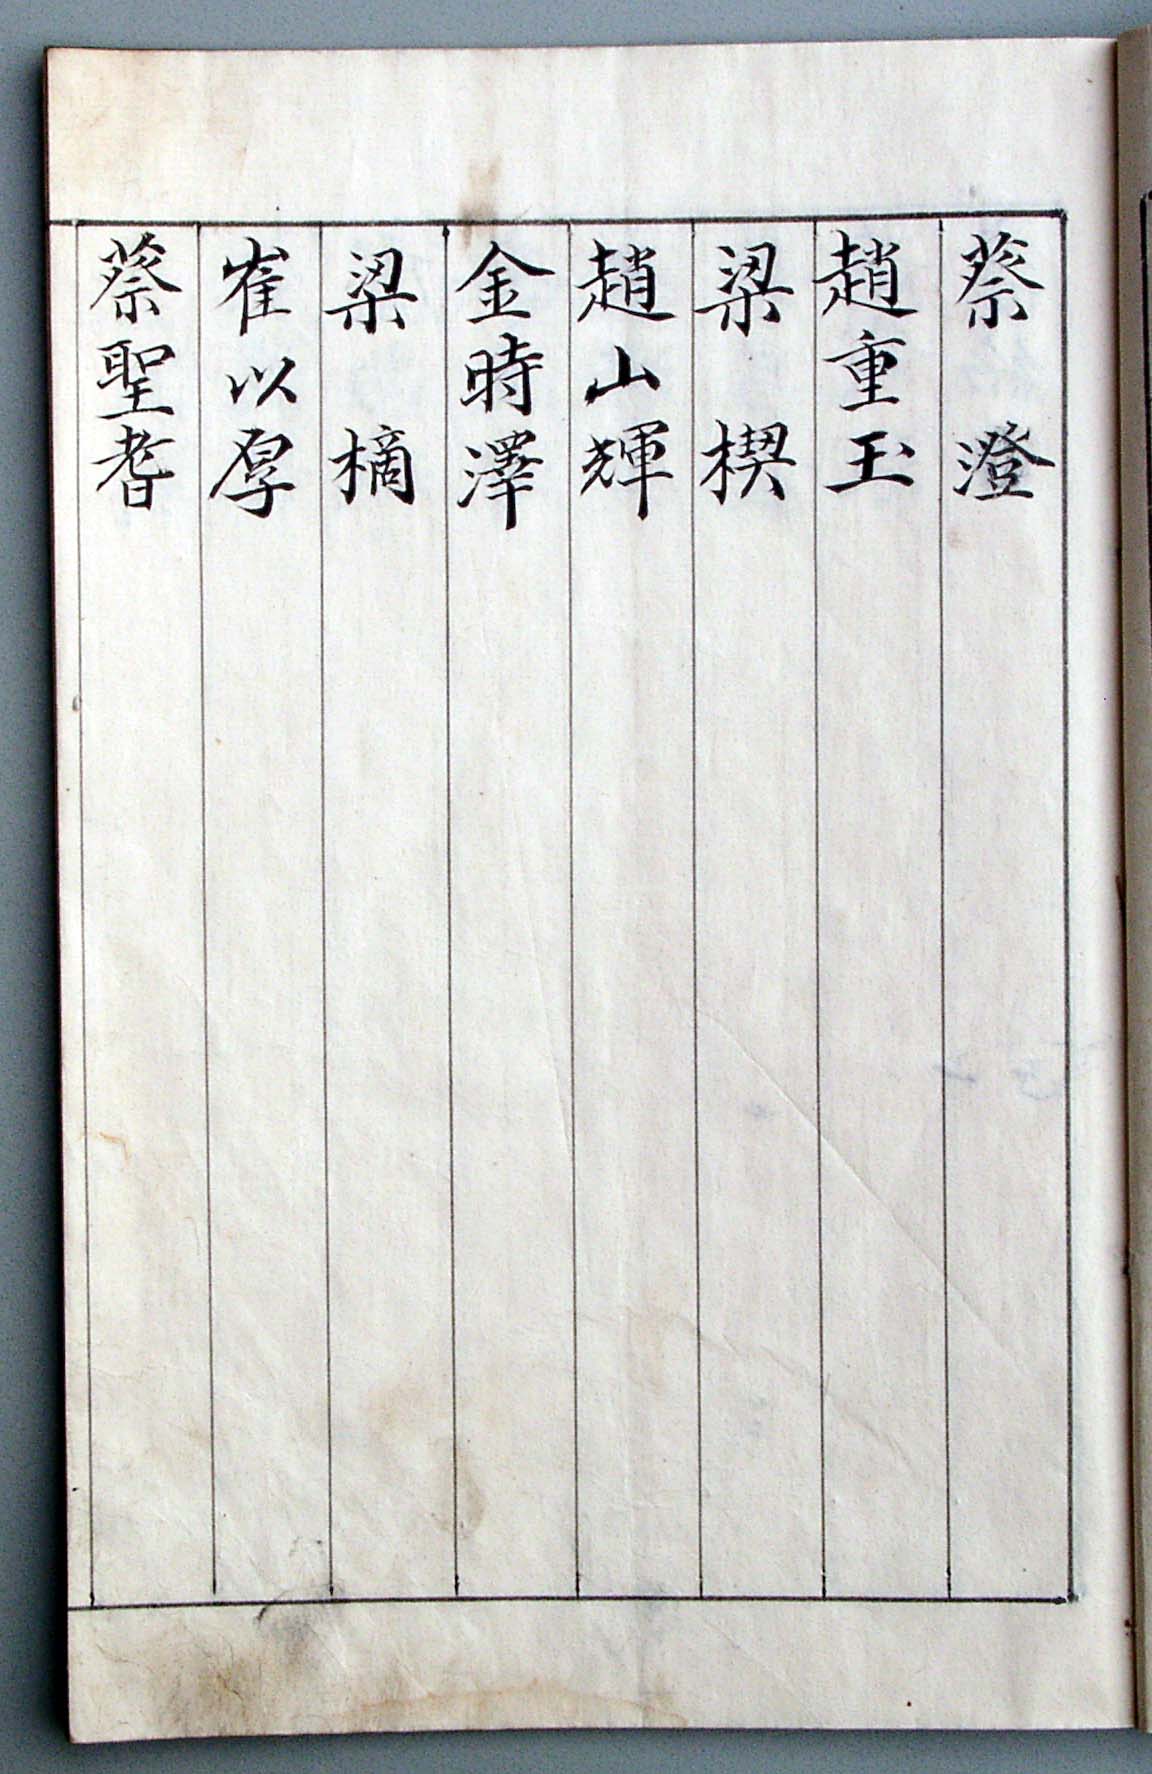 蔡澄
趙重玉
梁楔
趙山輝
金時澤
梁樀
崔以厚
蔡聖耆